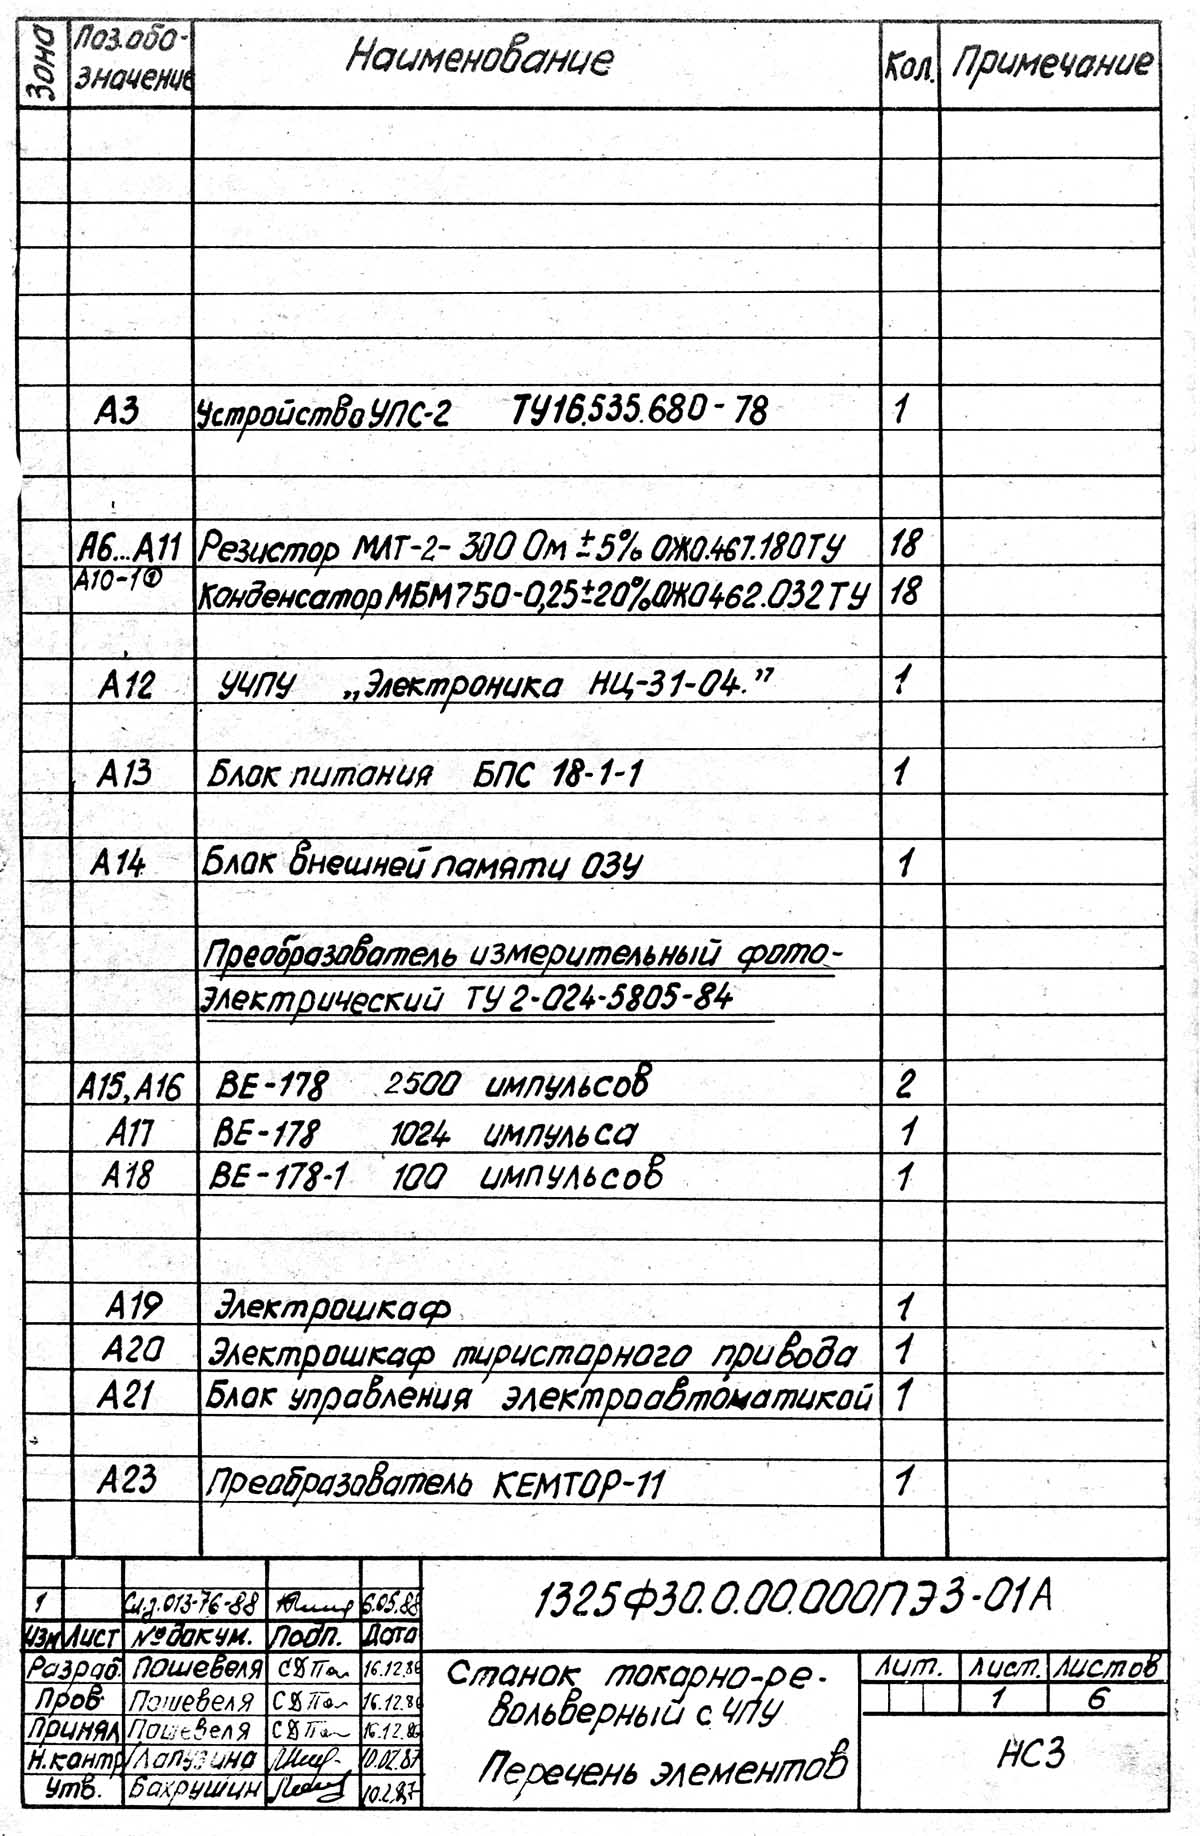 Зона Поз.обо- Наименование Кол. Примечание
значение
А3 Устройство УПС-2 ТУ16.535.680-78 1
А6...А11 Резистор МЛТ-2-300 Ом ±5% ОЖ0.467.180ТУ 18
А10-1①
Конденсатор МБМ750-0,25±20%ОЖ0462.032ТУ 18
А12 УЧПУ „Электроника НЦ-31-04.” 1
А13 Блок питания БПС 18-1-1 1
А14 Блок внешней памяти ОЗУ 1
Преобразователь измерительный фото-
электрический ТУ 2-024-5805-84
А15, А16 ВЕ-178 2500 импульсов 2
А17 ВЕ-178 1024 импульса 1
А18 ВЕ-178-1 100 импульсов 1
А19 Электрошкаф 1
А20 Электрошкаф тиристорного привода 1
А21 Блок управления электроавтоматикой 1
А23 Преобразователь КЕМТОР-11 1
1 013-76-88 6.05.88
Изм Лист № докум. Подп. Дата
1325Ф30.0.00.000ПЭ3-01А
Разраб. Пошевеля 16.12.86
Пров. Пошевеля 16.12.86
Принял Пошевеля 16.12.86
Н.контр Лапузина 10.02.87
Утв. Бахрушин 10.2.87
Станок токарно-ре-
вольверный с ЧПУ
Перечень элементов
Лит. Лист. Листов
1 6
НС3